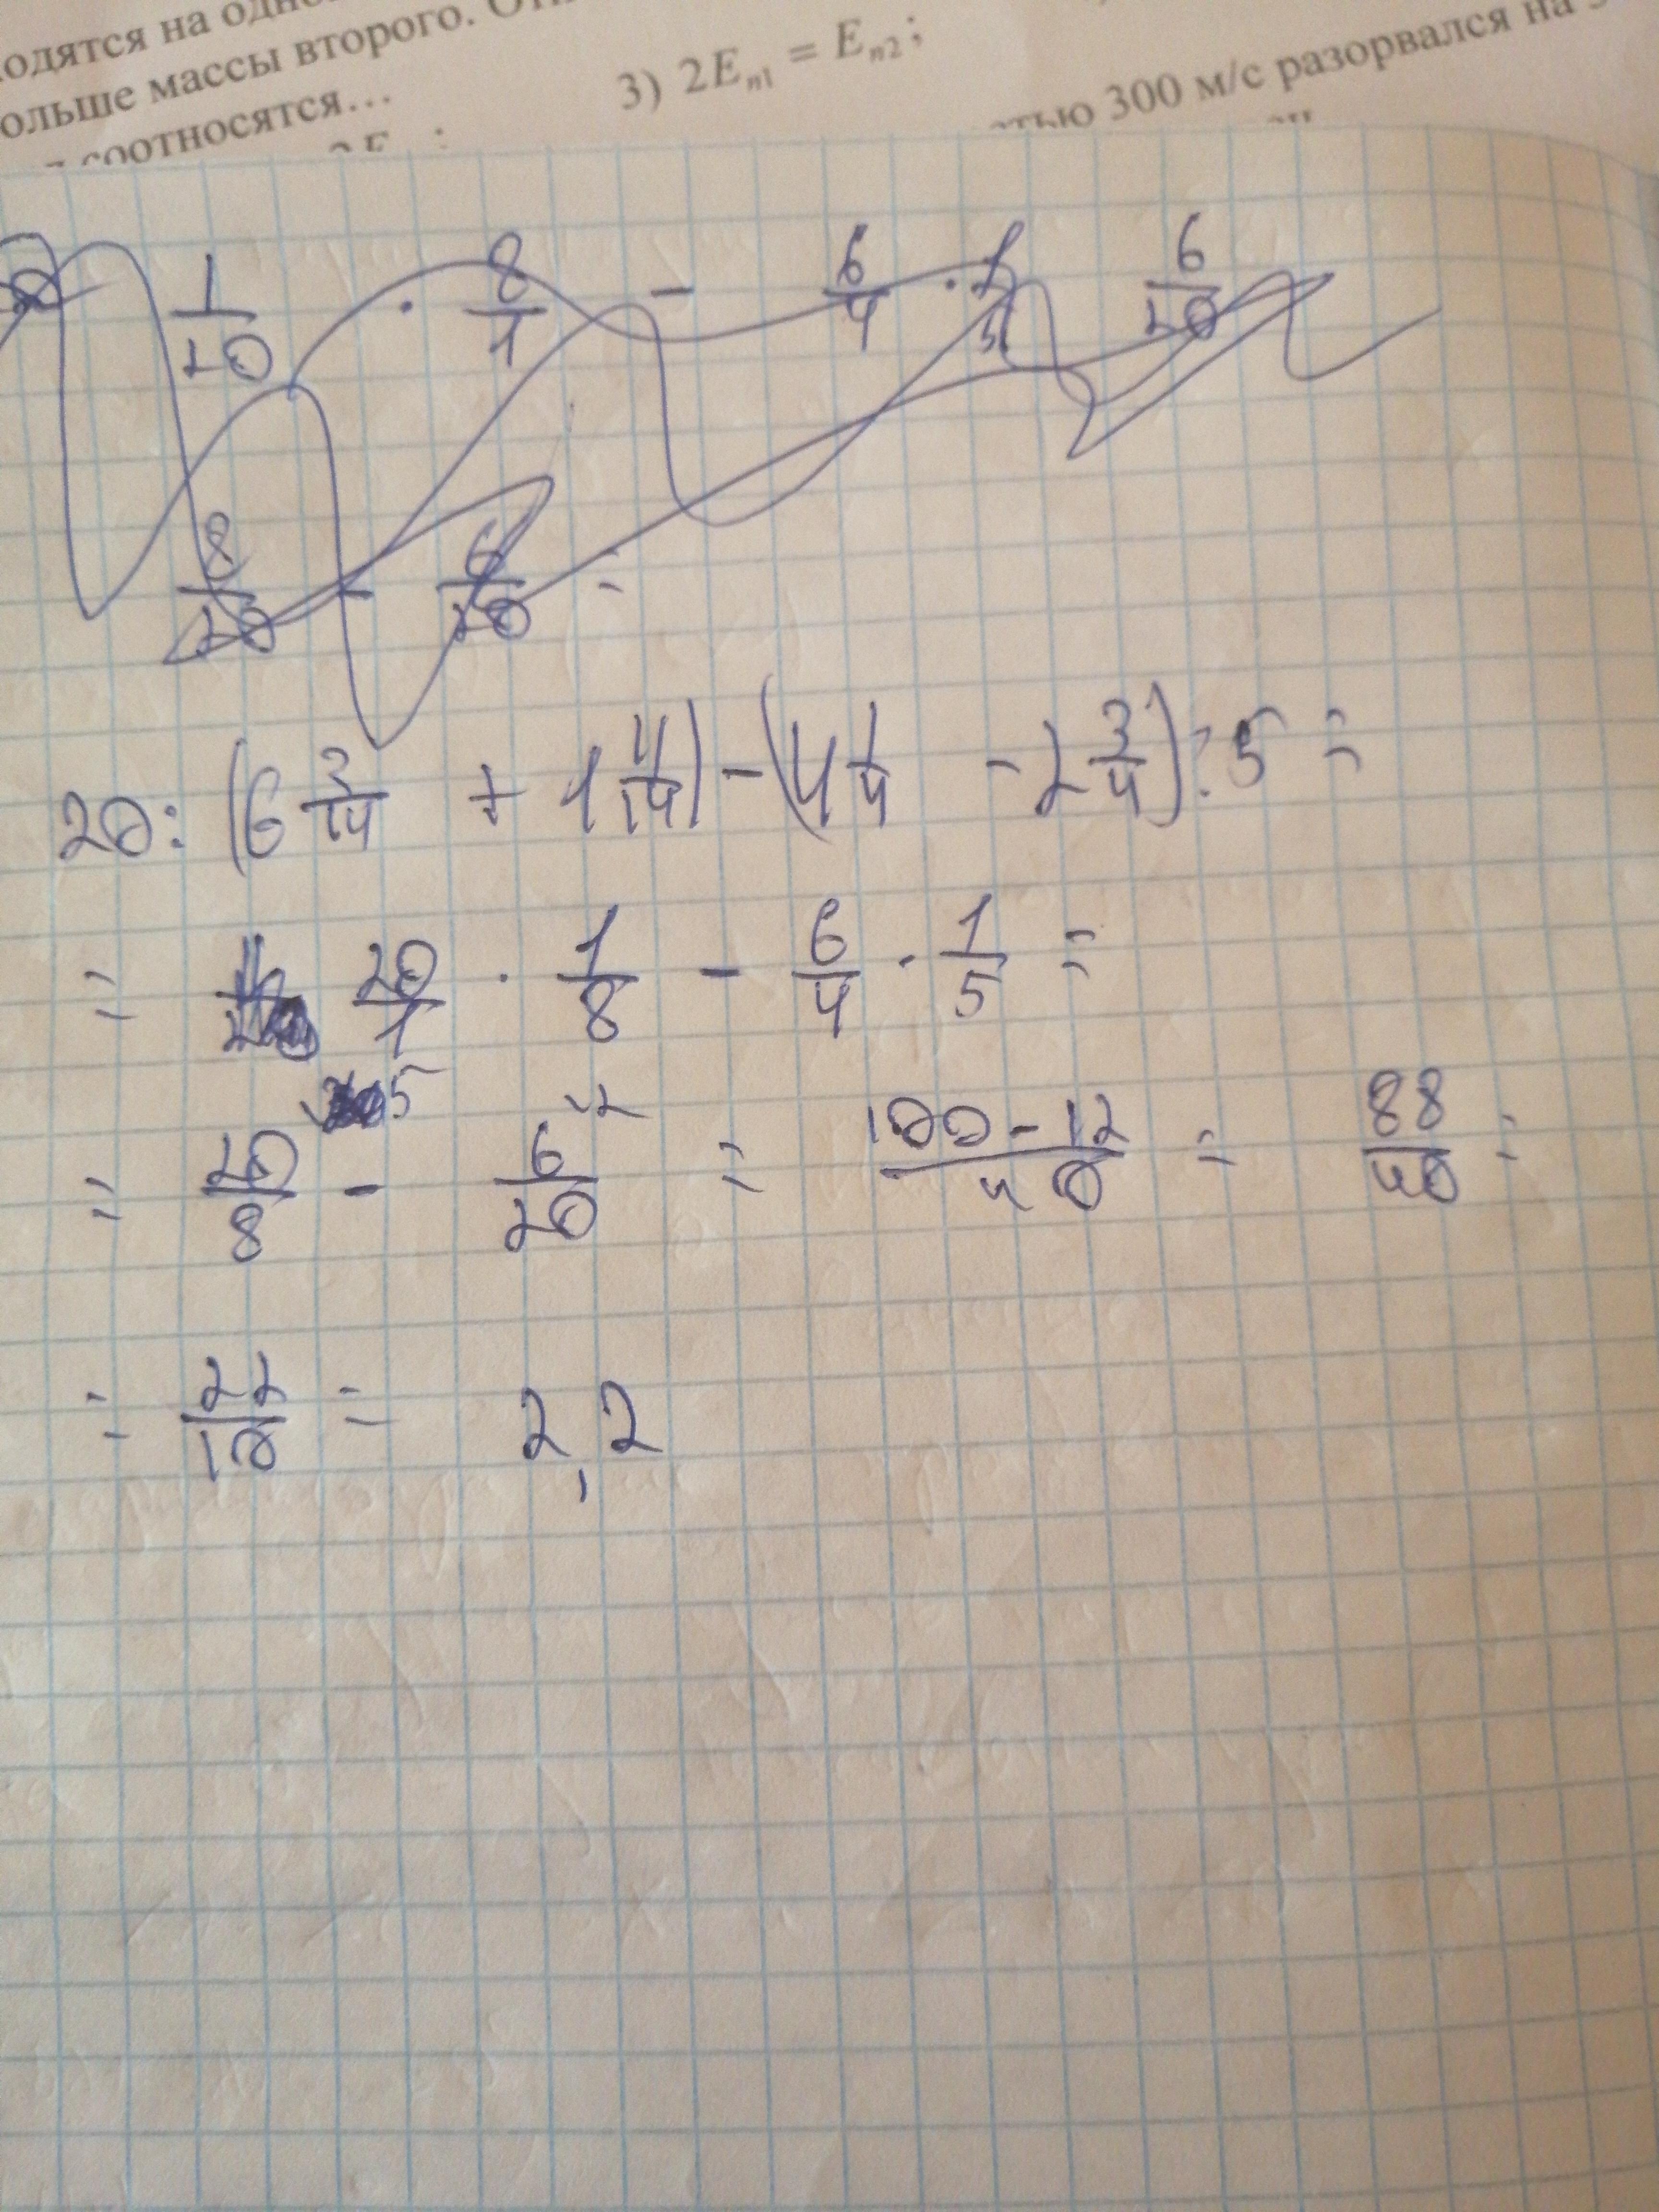 одятся на одно
ольше массы второго. От
соотносятся...
3) 2Eп1 = Eп2;
стью 300 м/с разорвался на
1/20 · 8/1 - 6/4 · 1/5 6/20
8/20 - 6/20 =
20: (6 3/14 + 1 11/14) - (4 1/4 - 2 3/4) : 5 =
= 20/1 · 1/8 - 6/4 · 1/5 =
= 20/8 \5 - 6/20 \2 = (100-12)/40 = 88/40 =
= 22/10 = 2,2